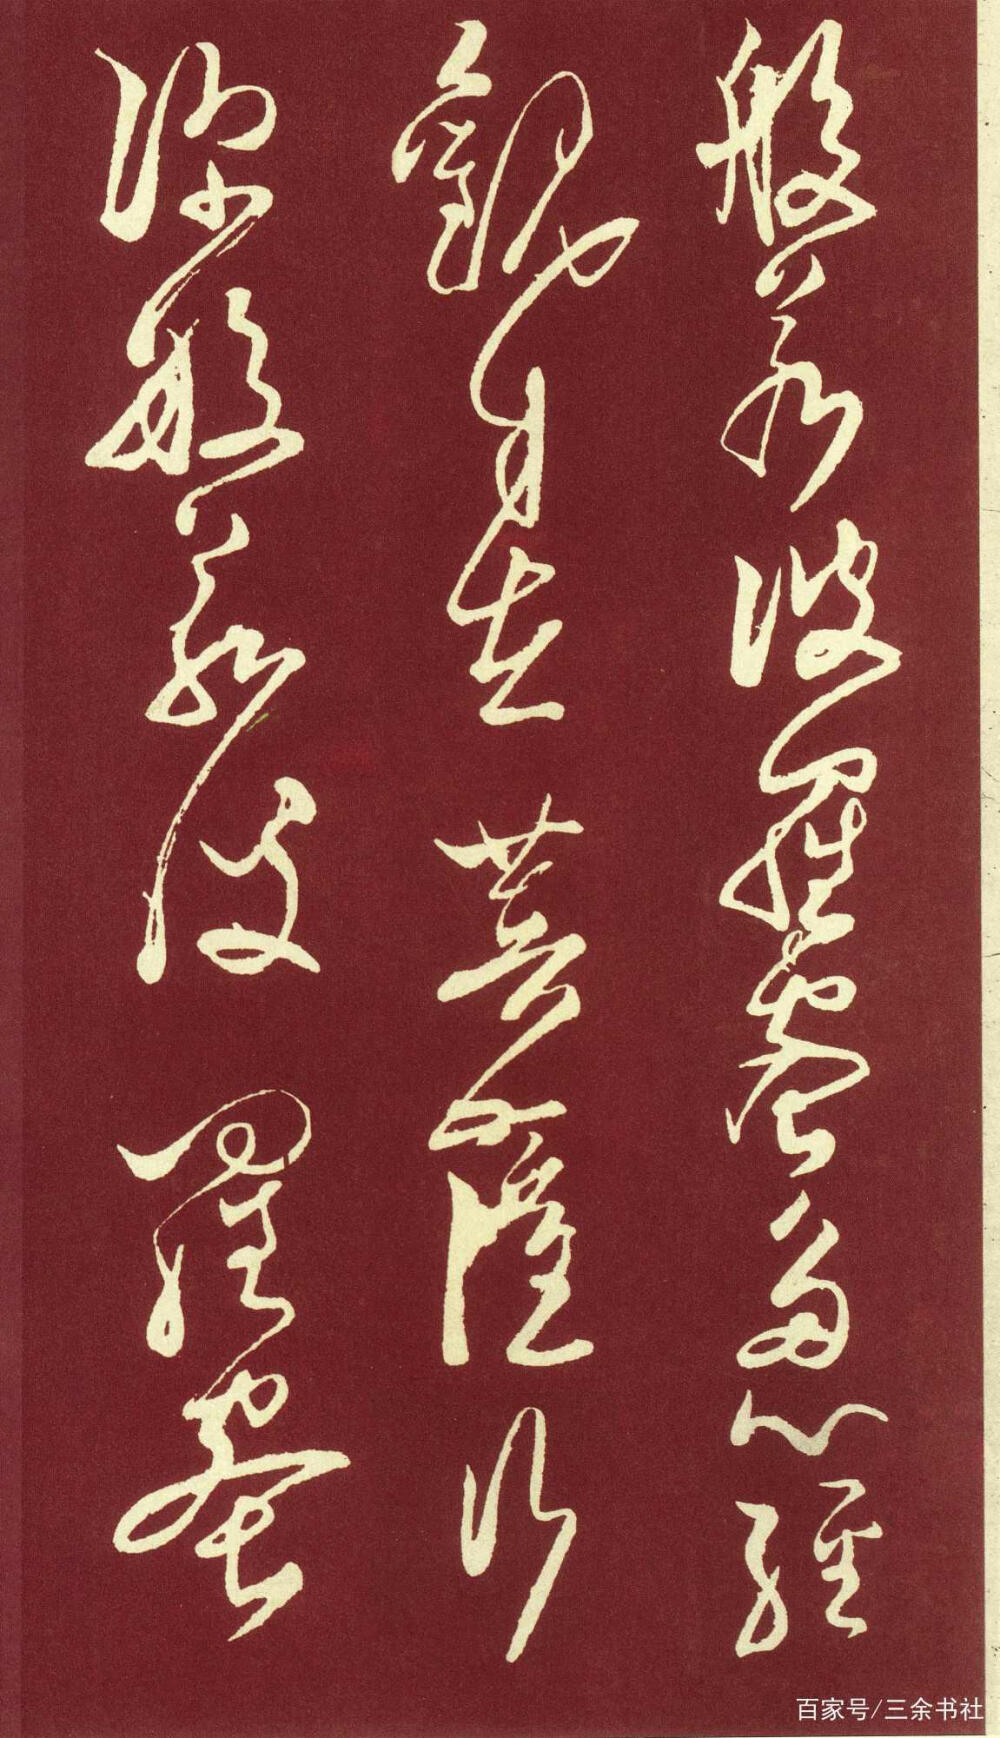 般若波羅蜜多心經
觀自在菩薩行
深般若波羅蜜
百家号/三余书社